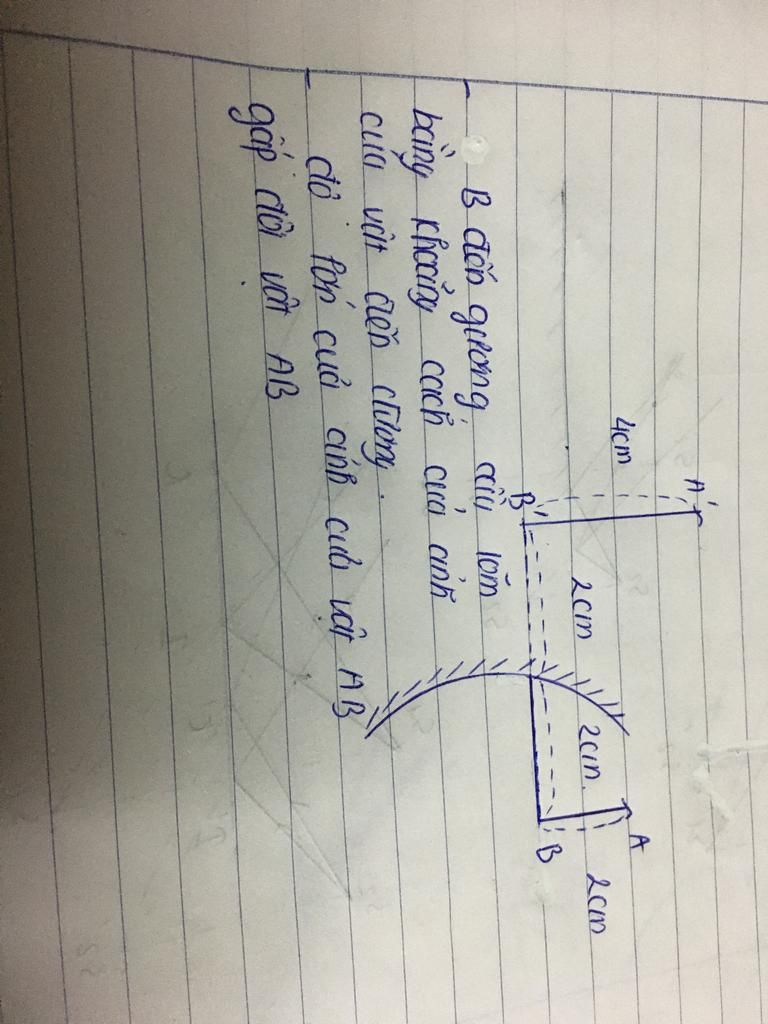 A'
A
4cm
2cm
2cm
2cm
B'
B
- B đến gương cầu lõm
bằng khoảng cách của ảnh
của vật đến gương.
- độ lớn của ảnh của vật AB
gấp đôi vật AB